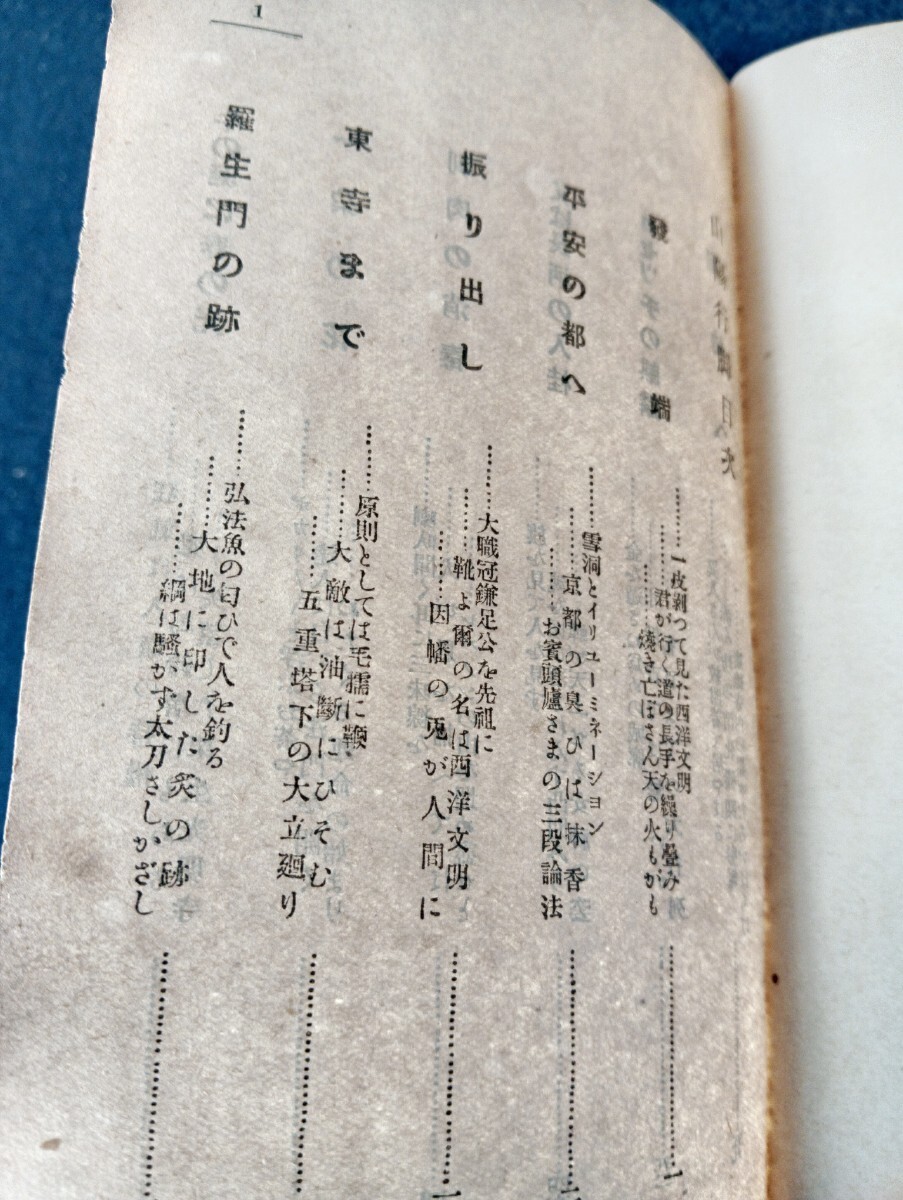 1
山陽行脚目次
發端
一皮剥つて見た西洋文明
君が行く道の長手を繰り疊み
燒き亡ぼさん天の火もがも
平安の都へ
雪洞とイリユーミネーシヨン
京都の天臭ひは抹香
お賓頭盧さまの三段論法
振り出し
大職冠鎌足公を先祖に
靴よ爾の名は西洋文明
因幡の兎が人間に
東寺まで
原則としては毛孺に鞭
大敵は油斷にひそむ
五重塔下の大立廻り
羅生門の跡
弘法魚の匂ひで人を釣る
大地に印した炙の跡
綱は騷かす太刀さしかざし